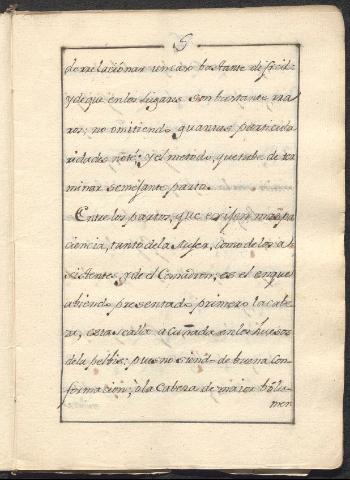 5
de relacionar un caso bastante dificil,
y de que en los lugares son bustante ra
ros; no omitiendo quantas particula
ridades noté; y el metodo, que debe de ter
minar semejante parto.
Entre los partos, que exijen mas pa
ciencia, tanto de la Mujer, como de los a
sistentes, y de el Comadron, es el en que
abiendo presentado primero la cabe
za, esta se alla acuñada en los huesos
de la pelbis; pues no siendo de buena con
formacion, ò la Cabeza de maior bolu-
men